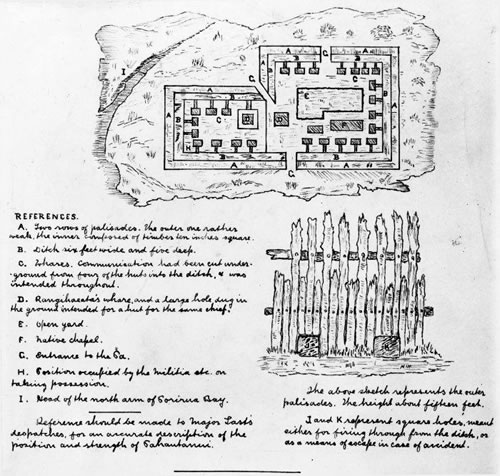 I
G
A
A
G
A
A
B
B
B
B
G
A
B
B
E
A
A
B
B
C
B
A
B
A
B
A
A
G
A
REFERENCES.
A. Two rows of palisades. The outer one rather
weak, the inner composed of timbers ten inches square.
B. Ditch six feet wide and five deep.
C. Whares. Communication had been cut under-
ground from four of the huts into the ditch, & was
intended throughout.
D. Rangihaeata's whare, and a large hole dug in
the ground intended for a hut for the same chief.
E. Open yard.
F. Native chapel.
G. Entrance to the Pa.
H. Position occupied by the Militia etc. on
taking possession.
I. Head of the north arm of Porirua Bay.
Reference should be made to Major Last's
despatches, for an accurate description of the
position and strength of
The above sketch represents the outer
palisades. The height about fifteen feet.
J and K represent square holes, meant
either for firing through from the ditch, or
as a means of escape in case of accident.